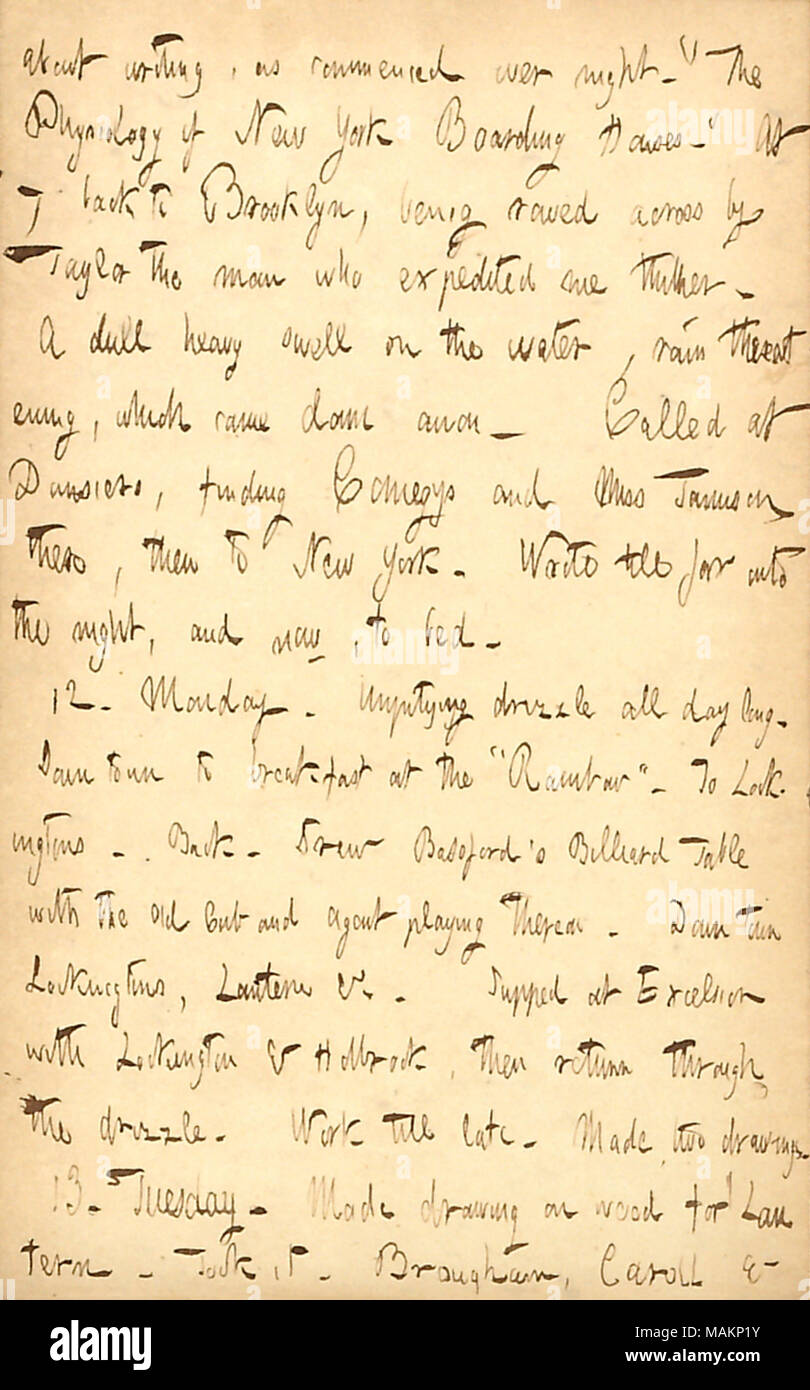 about writing, as commenced over night - "The
Physiology of New York Boarding Houses -" At
7 back to Brooklyn, being rowed across by
Taylor the man who expedited me thither -
A dull heavy swell on the water, rain threat
ening, which came down anon - Called at
Dunsiers, finding Comegys and Miss Jamison
there, then to New York - Wrote till far into
the night, and now, to bed -
12 - Monday - Unpitying drizzle all day long -
Down town to breakfast at the "Rainbow" - To Lock
ingtons - Back - Drew Bassford's Billiard Table
with the old Cub and agent playing thereon - Down town
Lockingtons, Lantern &c - Supped at Excelsior
with Lockington & Holbrook, then return through
the drizzle - Work till late - Made two drawings -
13 - Tuesday - Made drawing on wood for Lan
tern - Took it - Brougham, Caroll &
alamy
Image ID: MAKP1Y
www.alamy.com